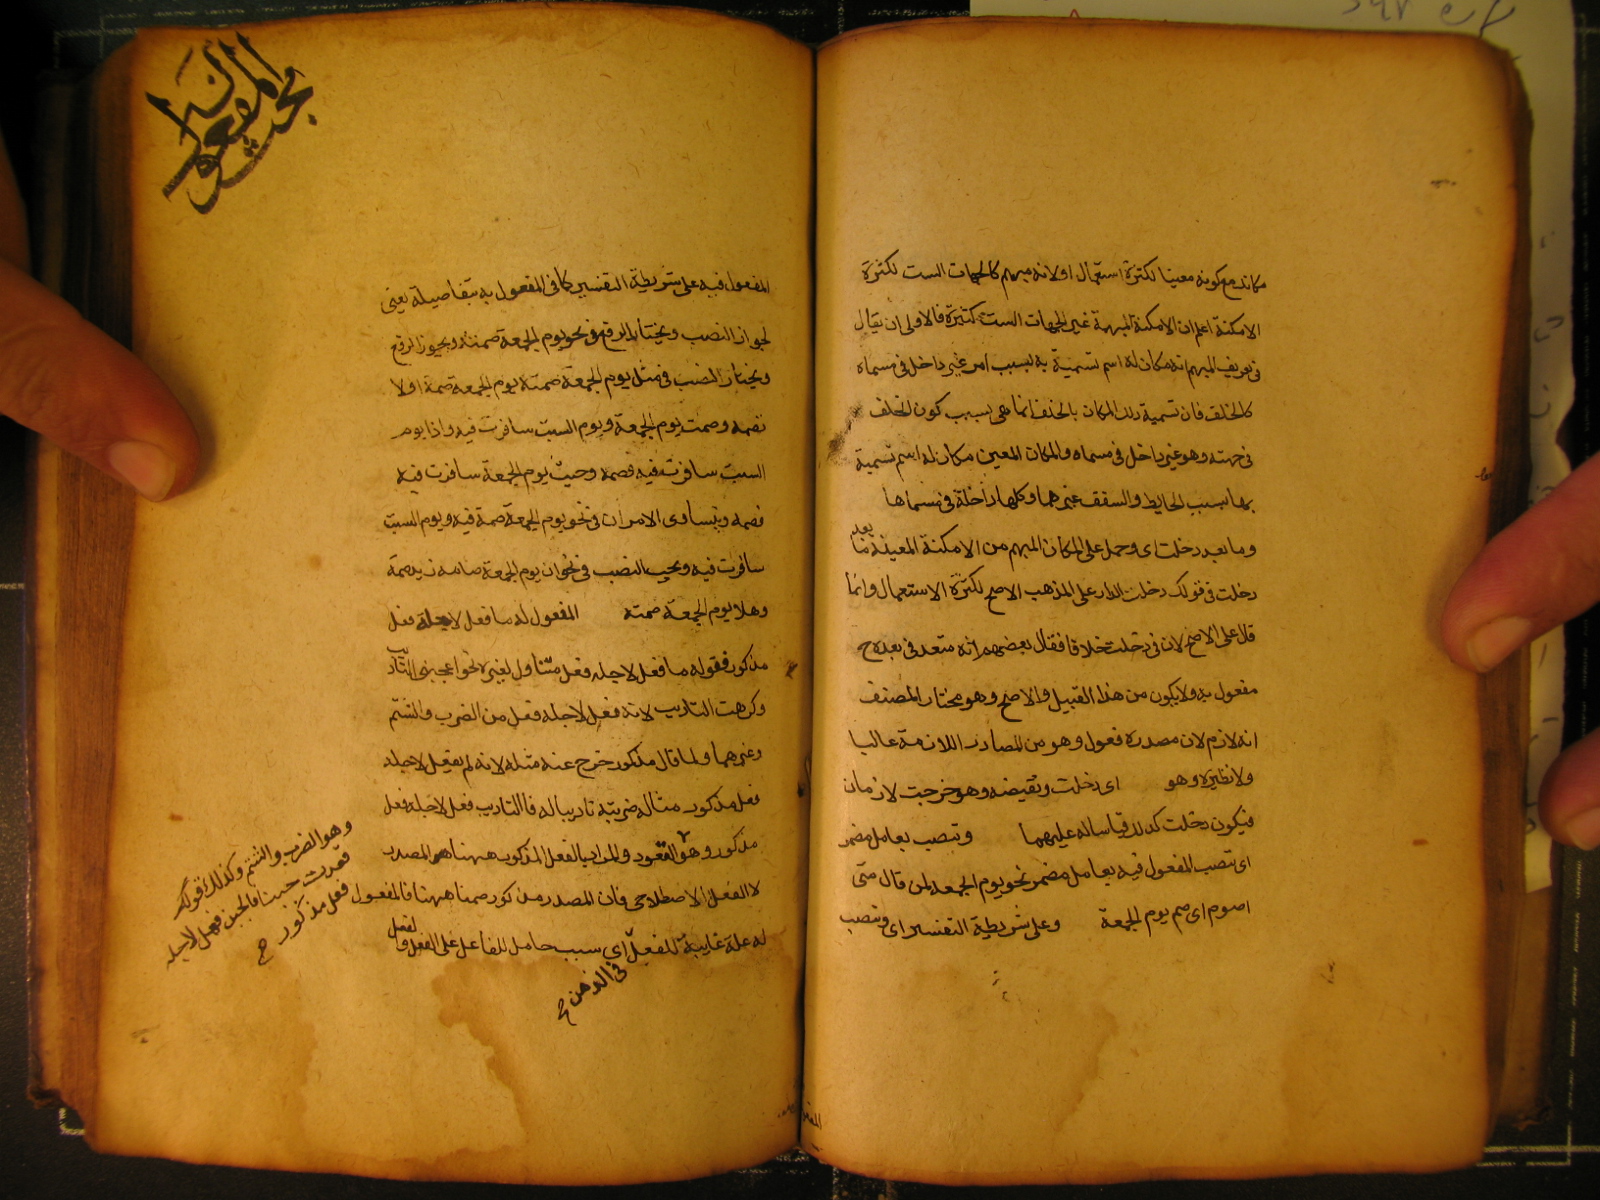 مكانه مع كونه معينا لكثرة استعمال او لانه مبهم كالجهات الست لكثرة
الامكنة اعلم ان الامكنة المبهمة غير الجهات الست كثيرة فالاولى ان يقال
فى تعريف المبهم انه مكان له اسم تسمية به بسبب امر غير داخل فى مسماه
كالخلف فان تسمية ذلك المكان بالخلف انما هى بسبب كون الخلف
فى جهته وهو غير داخل فى مسماه والمكان المعين مكان له اسم تسمية
بها بسبب الحايط والسقف غيرهما وكلها داخلة فى مسماها
وما بعد دخلت اى وحمل على المكان المبهم من الامكنة المعينة ما بعد
دخلت فى قولك دخلت الدار على المذهب الاصح لكثرة الاستعمال وانما
قال على الاصح لان فى دخلت خلافا فقال بعضهم انه متعد فى بعده ح
مفعول به ولا يكون من هذا القبيل والاصح وهو مختار المصنف
انه لازم لان مصدره فعول وهو من المصادر اللازمة غالبا
ولا نظيره وهو اى دخلت ونقيضه وهو خرجت لازمان
فيكون دخلت كذلك قياسا له عليهما وتنصب بعامل مضمر
اى تنصب المفعول فيه بعامل مضمر نحو يوم الجمعة لمن قال متى
اصوم اى صم يوم الجمعة وعلى شريطة التفسير اى وتنصب
مبحث المفعول له
المفعول فيه على شريطة التفسير كما فى المفعول به بتفاصيله يعنى
يجوز النصب ويختار الرفع فى نحو يوم الجمعة صمته ويجوز الرفع
ويختار النصب فى مثل يوم الجمعة صمته يوم الجمعة صمة او لا
تصمه وصمت يوم الجمعة ويوم السبت سافرت فيه واذا يوم
السبت سافرت فيه فصمه وحيث يوم الجمعة سافرت فيه
فصمه ويتساوى الامران فى نحو يوم الجمعة صمة فيه ويوم السبت
سافرت فيه ويجب النصب فى نحو ان يوم الجمعة صامه زيد صمة
وهلا يوم الجمعة صمته المفعول له ما فعل لاجله فعل
مذكور فقوله ما فعل لاجله فعل متناول لغيره نحو اعجبنى التأديب
وكرهت التاديب لانه فعل لاجله فعل من الضرب والشتم
وغيرهما ولما قال مذكور خرج عنه مثله لانه لم يفعل لاجله
فعل مذكور مثاله ضربته تاديبا له فاالتاديب فعل لاجله فعل
مذكور وهو القعود والمراد بالفعل المذكور ههنا هو المصدر
لا الفعل الاصطلاحى فان المصدر مذكور ضمنا ههنا فالمفعول
له علة غايية للفعل اى سبب حامل للفاعل على الفعل
فى الذهن ح
وهو الضرب والشتم وكذلك قولك
قعدت جبنا فالجبن فعل لاجله
فعل مذكور ح